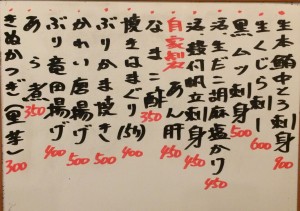 生本鮪中とろ刺身 900
生くじら刺し 600
黒ムツ刺身 500
活だこ胡麻塩かり 450
活、殻付帆立刺身 450
自家製 あん肝 450
なまこ酢 350
焼きはまぐり(5ケ) 400
ぶりかま焼き 500
かれい唐揚げ 500
ぶり竜田揚げ 400
あら煮 350
きぬかつぎ(里芋) 300